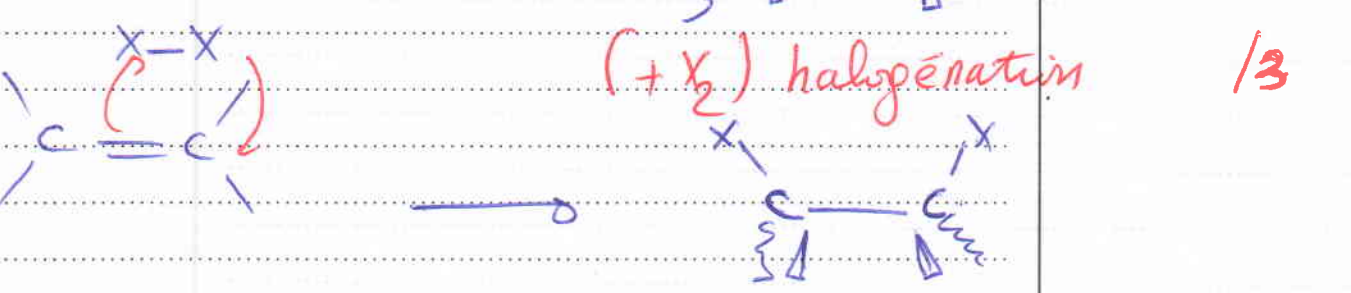 X—X
(+ X2) halogénation /3
C = C
X X
C — C